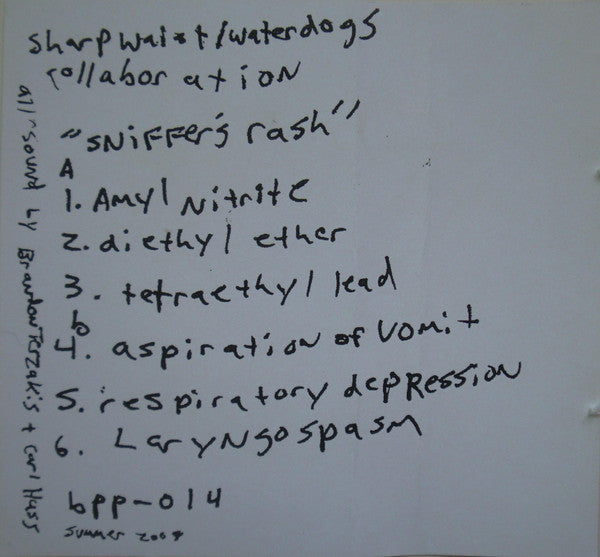 sharpwaist/waterdogs
collaboration
"sniffer's rash"
A
1. Amyl Nitrite
2. diethyl ether
3. tetraethyl lead
b
4. aspiration of vomit
5. respiratory depression
6. Laryngospasm
bpp-014
summer
all sound by Brandon Terzakis + Carl Haas